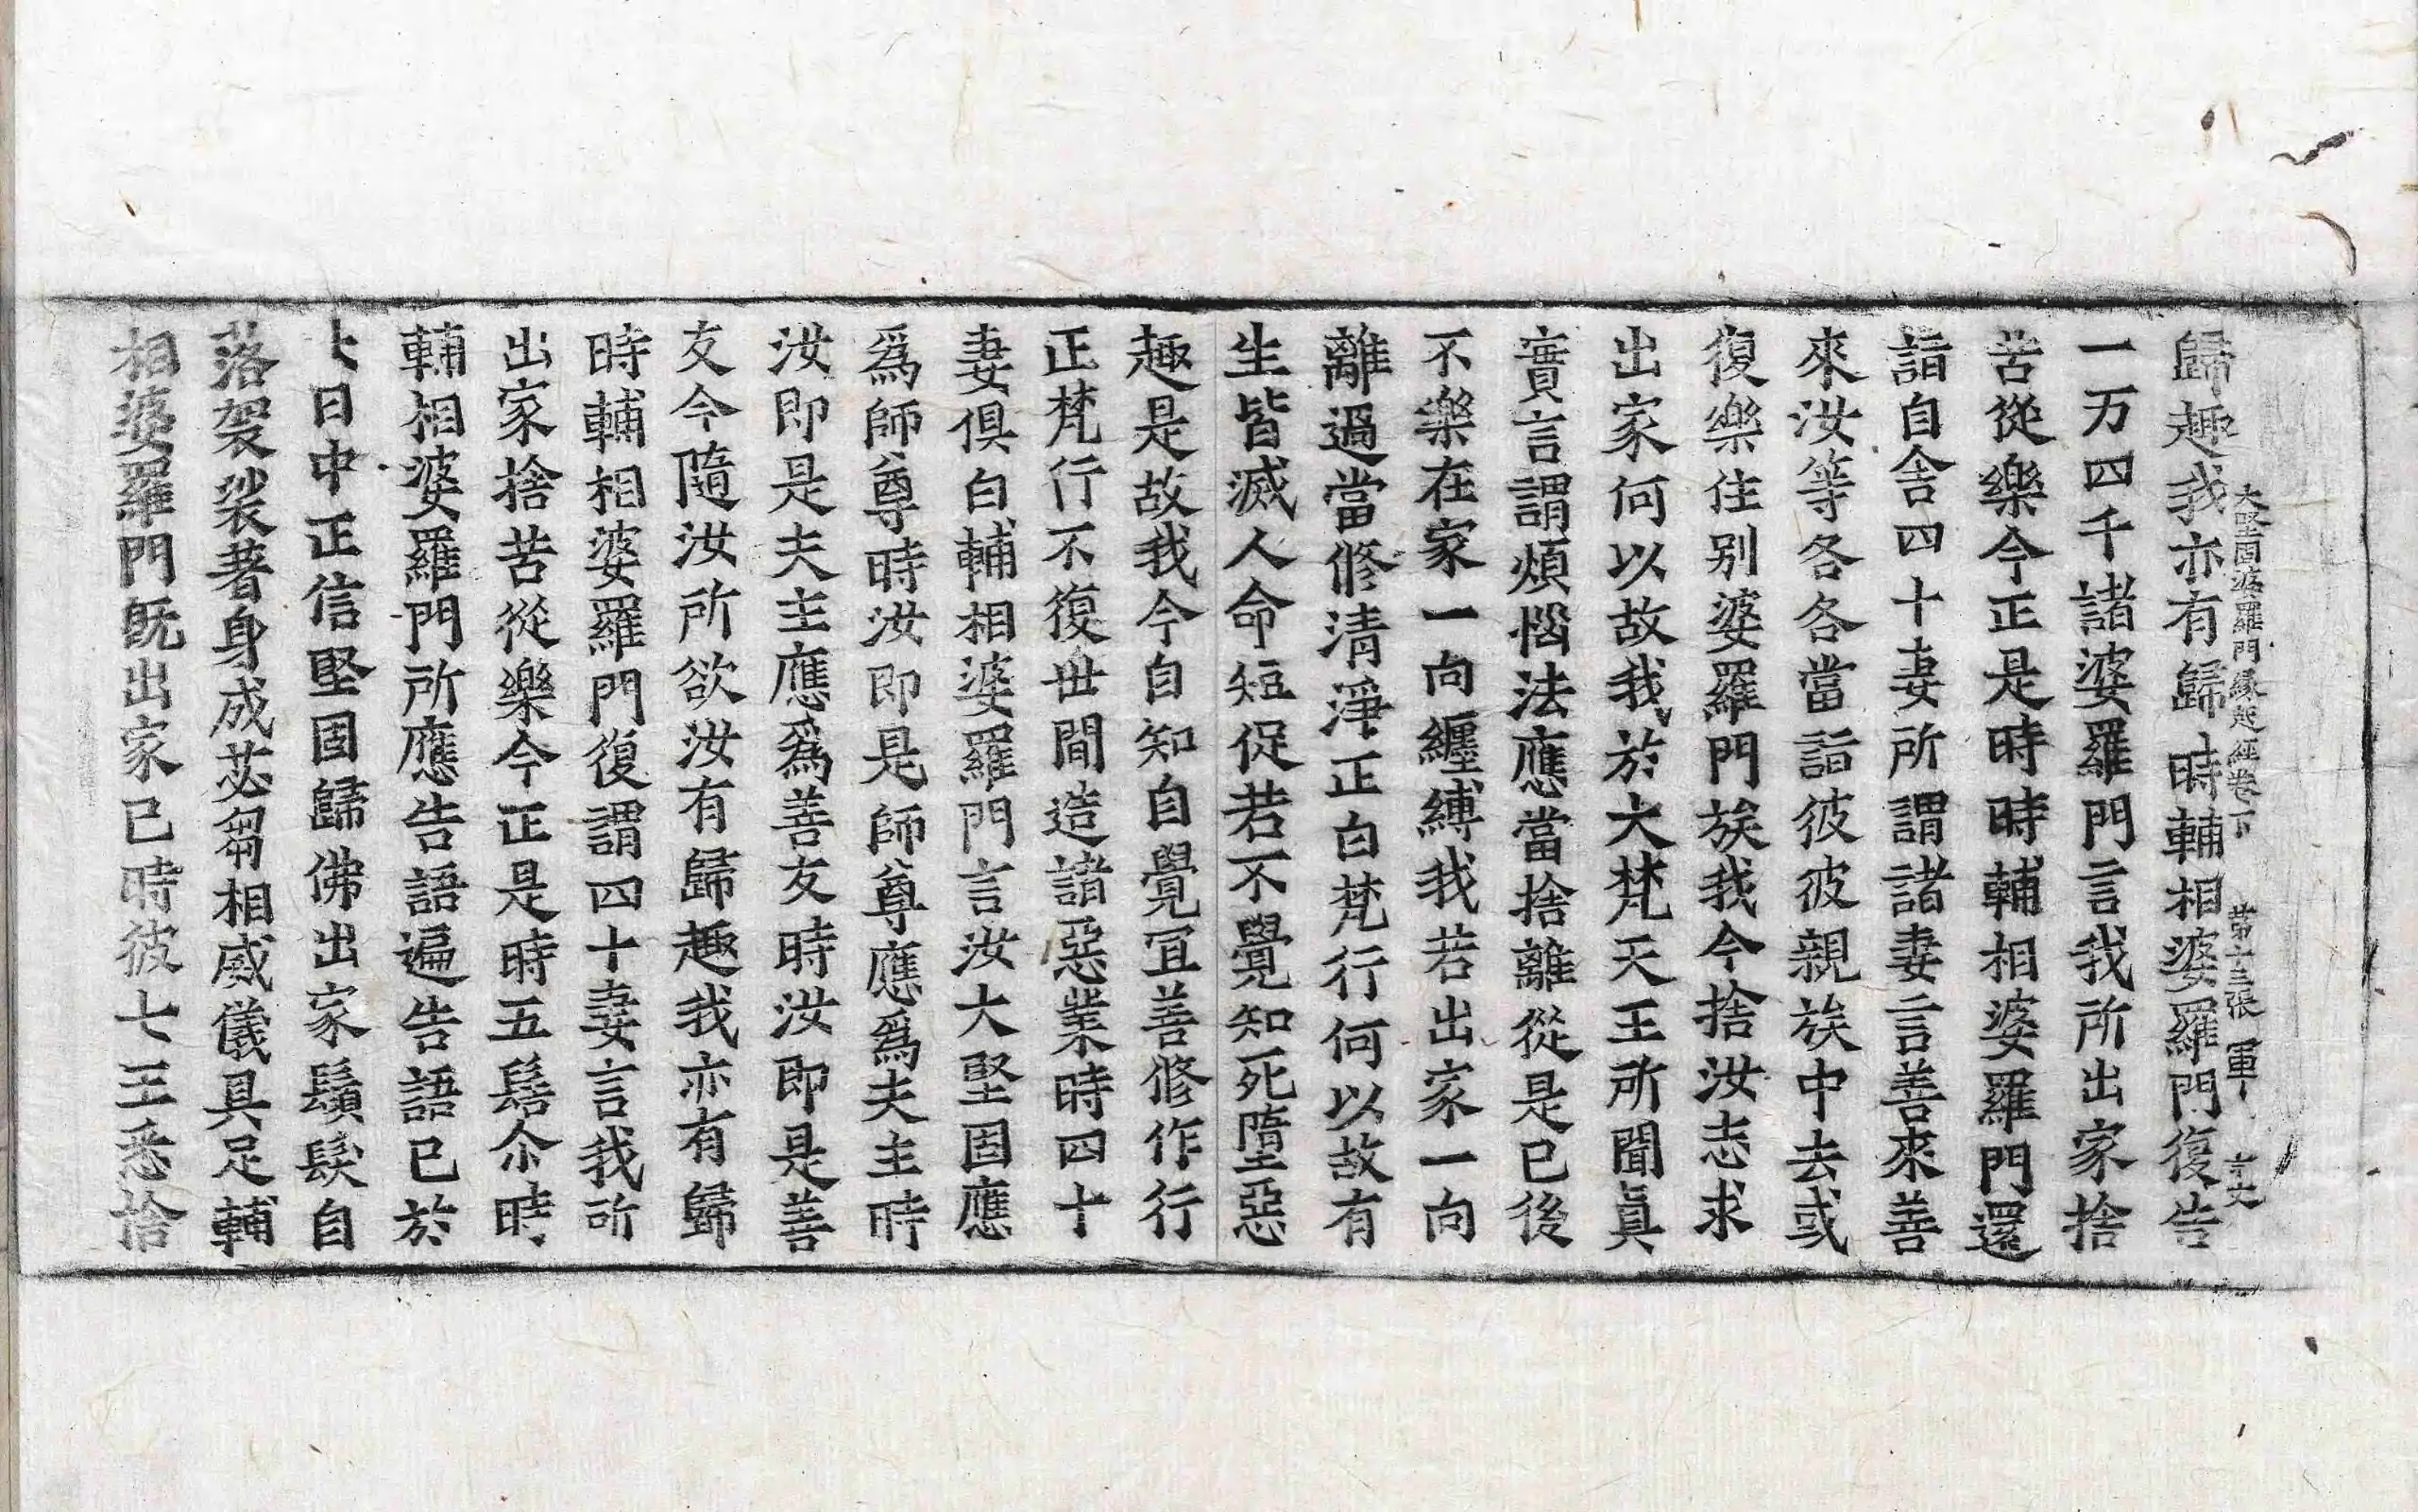 大堅固婆羅門緣起經卷下 第十三張 軍
歸趣我亦有歸時輔相婆羅門復告
一万四千諸婆羅門言我所出家捨
苦從樂今正是時時輔相婆羅門還
詣自舍四十妻所謂諸妻言善來善
來汝等各各當詣彼彼親族中去或
復樂住別婆羅門族我今捨汝志求
出家何以故我於大梵天王所聞眞
實言謂煩惱法應當捨離從是已後
不樂在家一向纏縛我若出家一向
離過當修清淨正白梵行何以故有
生皆滅人命短促若不覺知死墮惡
趣是故我今自知自覺宜善修作行
正梵行不復世間造諸惡業時四十
妻俱白輔相婆羅門言汝大堅固應
爲師尊時汝即是師尊應爲夫主時
汝即是夫主應爲善友時汝即是善
友今隨汝所欲汝有歸趣我亦有歸
時輔相婆羅門復謂四十妻言我所
出家捨苦從樂今正是時五髻尒時
輔相婆羅門所應告語遍告語已於
七日中正信堅固歸佛出家鬚髮自
落袈裟著身成苾芻相威儀具足輔
相婆羅門旣出家已時彼七王悉捨